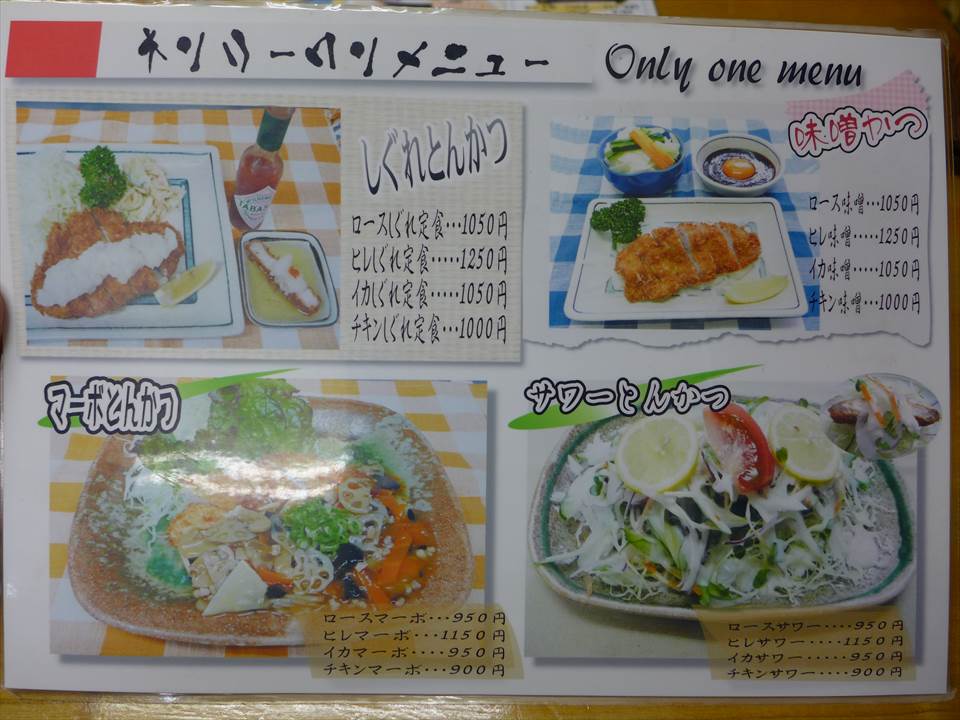 オンリーワンメニュー Only one menu
しぐれとんかつ
ロースしぐれ定食…1050円
ヒレしぐれ定食……1250円
イカしぐれ定食……1050円
チキンしぐれ定食…1000円
味噌かつ
ロース味噌…1050円
ヒレ味噌……1250円
イカ味噌……1050円
チキン味噌…1000円
マーボとんかつ
ロースマーボ…950円
ヒレマーボ…1150円
イカマーボ……950円
チキンマーボ…900円
サワーとんかつ
ロースサワー‥‥950円
ヒレサワー‥‥1150円
イカサワー‥‥‥950円
チキンサワー‥‥900円